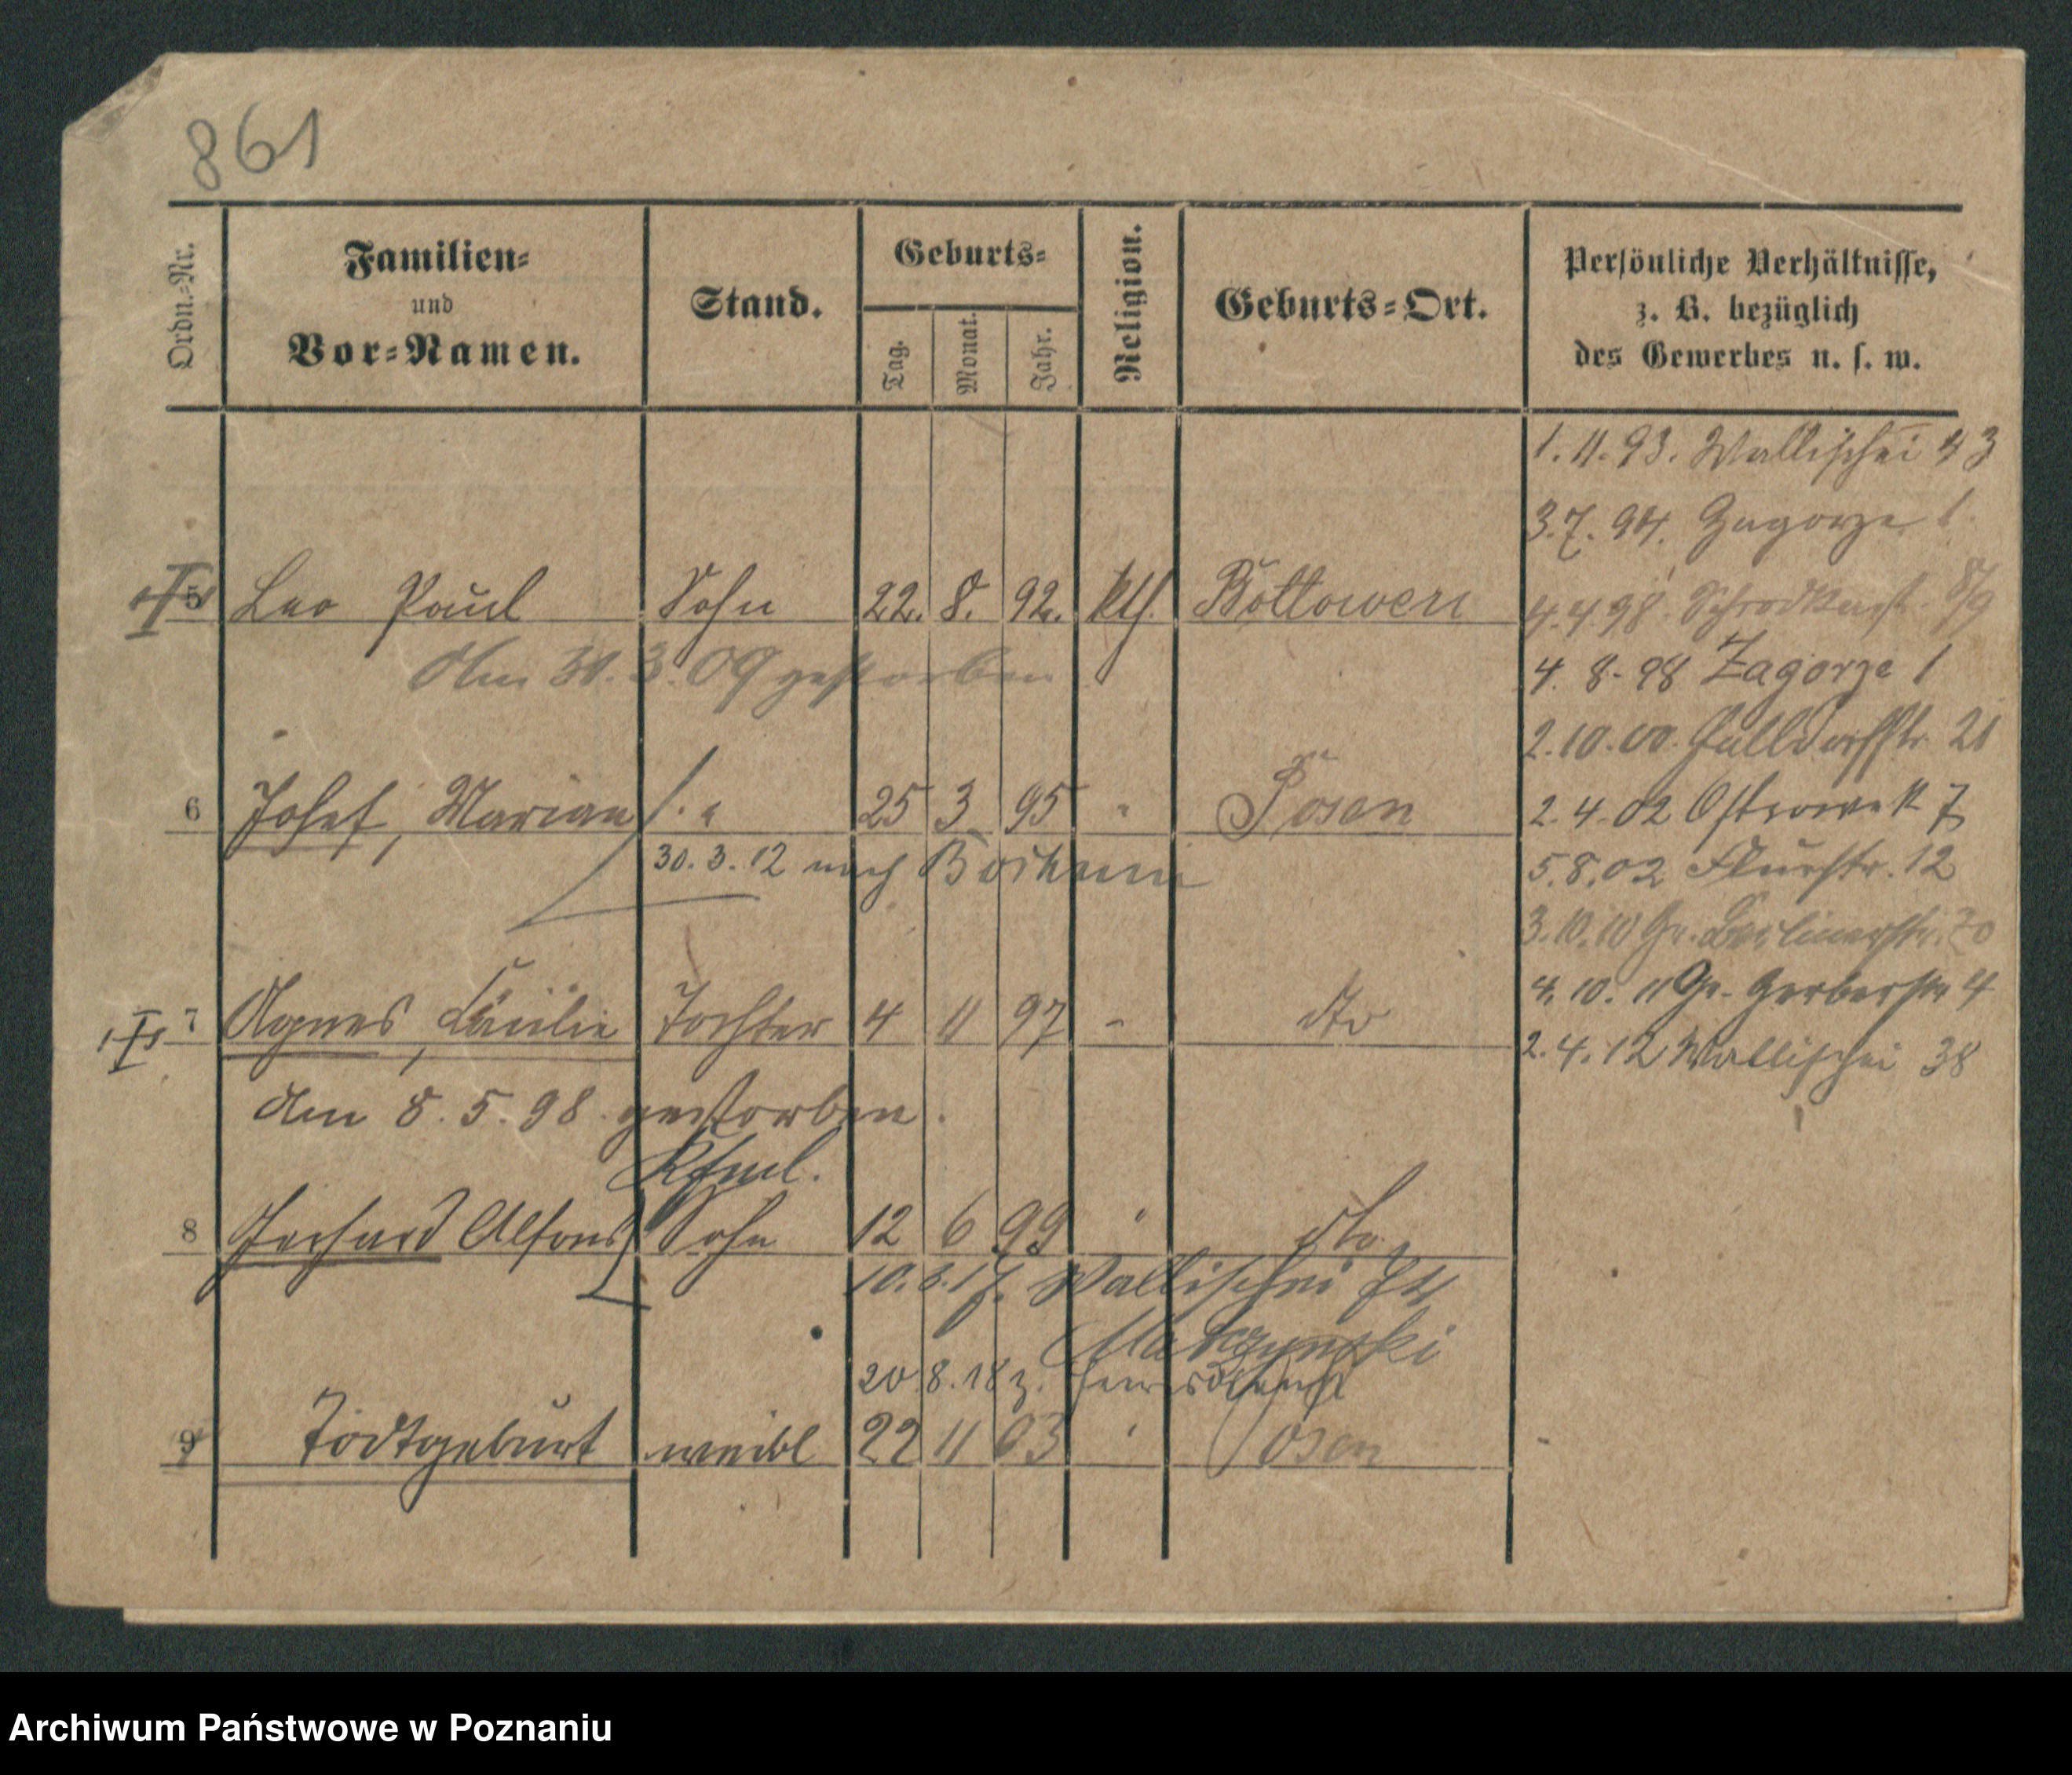 861
Ordn.-Nr.
Familien-
und
Vor-Namen.
Stand.
Geburts-
Tag.
Monat.
Jahr.
Religion.
Geburts-Ort.
Persönliche Verhältnisse,
z. B. bezüglich
des Gewerbes u. s. w.
1. 11. 93. Wallischei 43
3.7. 94. Zagorze 1.
5 Leo Paul Sohn 22. 8. 92. kth.
4.4.98. 8/9
am 3. 09 gestorben
4. 8. 98 Zagorze 1
2.10.00. 21
6 Josef, Marian " 25 3 95 " Posen
2. 4. 02 Ostrowek 7
30. 3. 12 nach Bochum
5.8.02 Flurstr. 12
3.10.10 Gr. Berlinerstr. 70
7 Agnes, Cäcilie Tochter 4 11 97 " dto
4. 10. 11 Gr. Gerberstr 4
2. 4. 12 Wallischei 38
am 8. 5. 98. gestorben.
8 Gerhard Alfons Sohn 12 6 99 " dto.
Wallischei
20.8.18 z. Heeresdienst
9 Todtgeburt weibl 22 11 03 " Posen
Archiwum Państwowe w Poznaniu